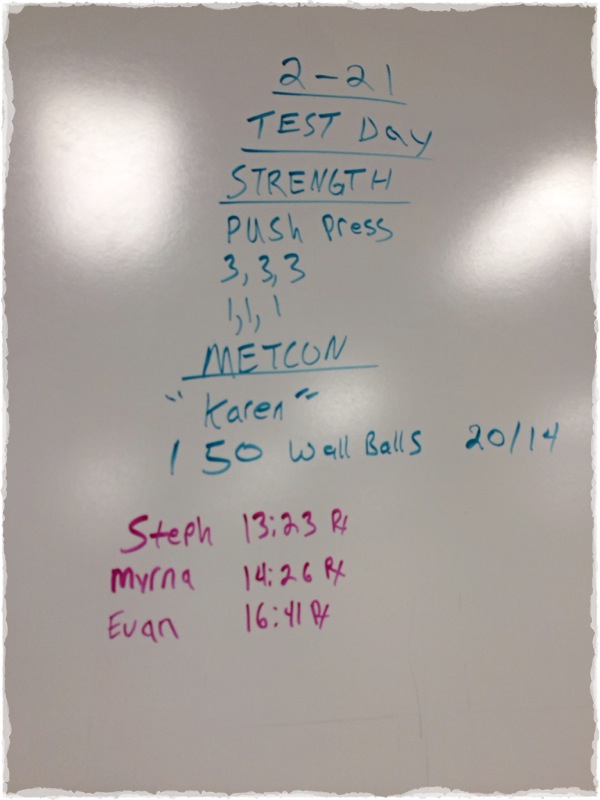 2-21
TEST Day
STRENGTH
PUSh Press
3, 3, 3
1, 1, 1
METCON
"Karen"
150 Wall Balls 20/14
Steph 13:23 Rx
Myrna 14:26 Rx
Evan 16:41 Rx